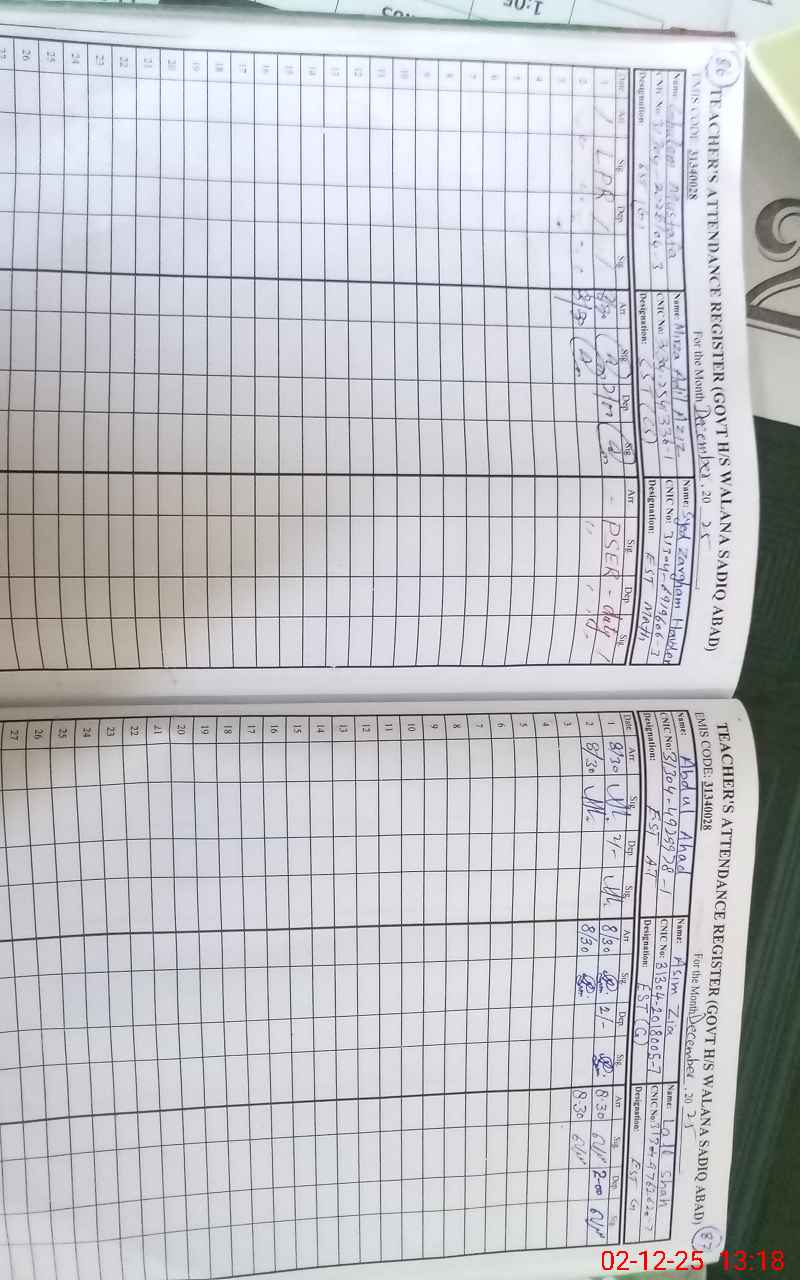 86
TEACHER'S ATTENDANCE REGISTER (GOVT H/S WALANA SADIQ ABAD)
EMIS CODE: 31340028
For the Month December, 2025
Name: Ghulam Mustafa
CNIC No:
Designation: EST (G)
Name: Mirza Adil Aziz
CNIC No:
Designation: EST (CS)
Name: Syed Zargham Haider
CNIC No: 31304-8919606-3
Designation: EST Math
Date Arr Sig Dep Sig Arr Sig Dep Sig Arr Sig Dep Sig
1 / LPR / / 8/30 2/00 - PSER - duty /
2 8/30
3
4
5
6
7
8
9
10
11
12
13
14
15
16
17
18
19
20
21
22
23
24
25
26
27
TEACHER'S ATTENDANCE REGISTER (GOVT H/S WALANA SADIQ ABAD)
87
EMIS CODE: 31340028
For the Month December, 2025
Name: Abdul Ahad
CNIC No: 31304-4925978-1
Designation: EST AT
Name: Asim Zia
CNIC No: 31304-2018005-7
Designation: EST (G)
Name: Lall Shah
CNIC No:
Designation: EST G
Date Arr Sig Dep Sig Arr Sig Dep Sig Arr Sig Dep Sig
1 8/30 2/- 8/30 2/- 8:30 2-00
2 8/30 8/30 8:30
3
4
5
6
7
8
9
10
11
12
13
14
15
16
17
18
19
20
21
22
23
24
25
26
27
02-12-25 13:18